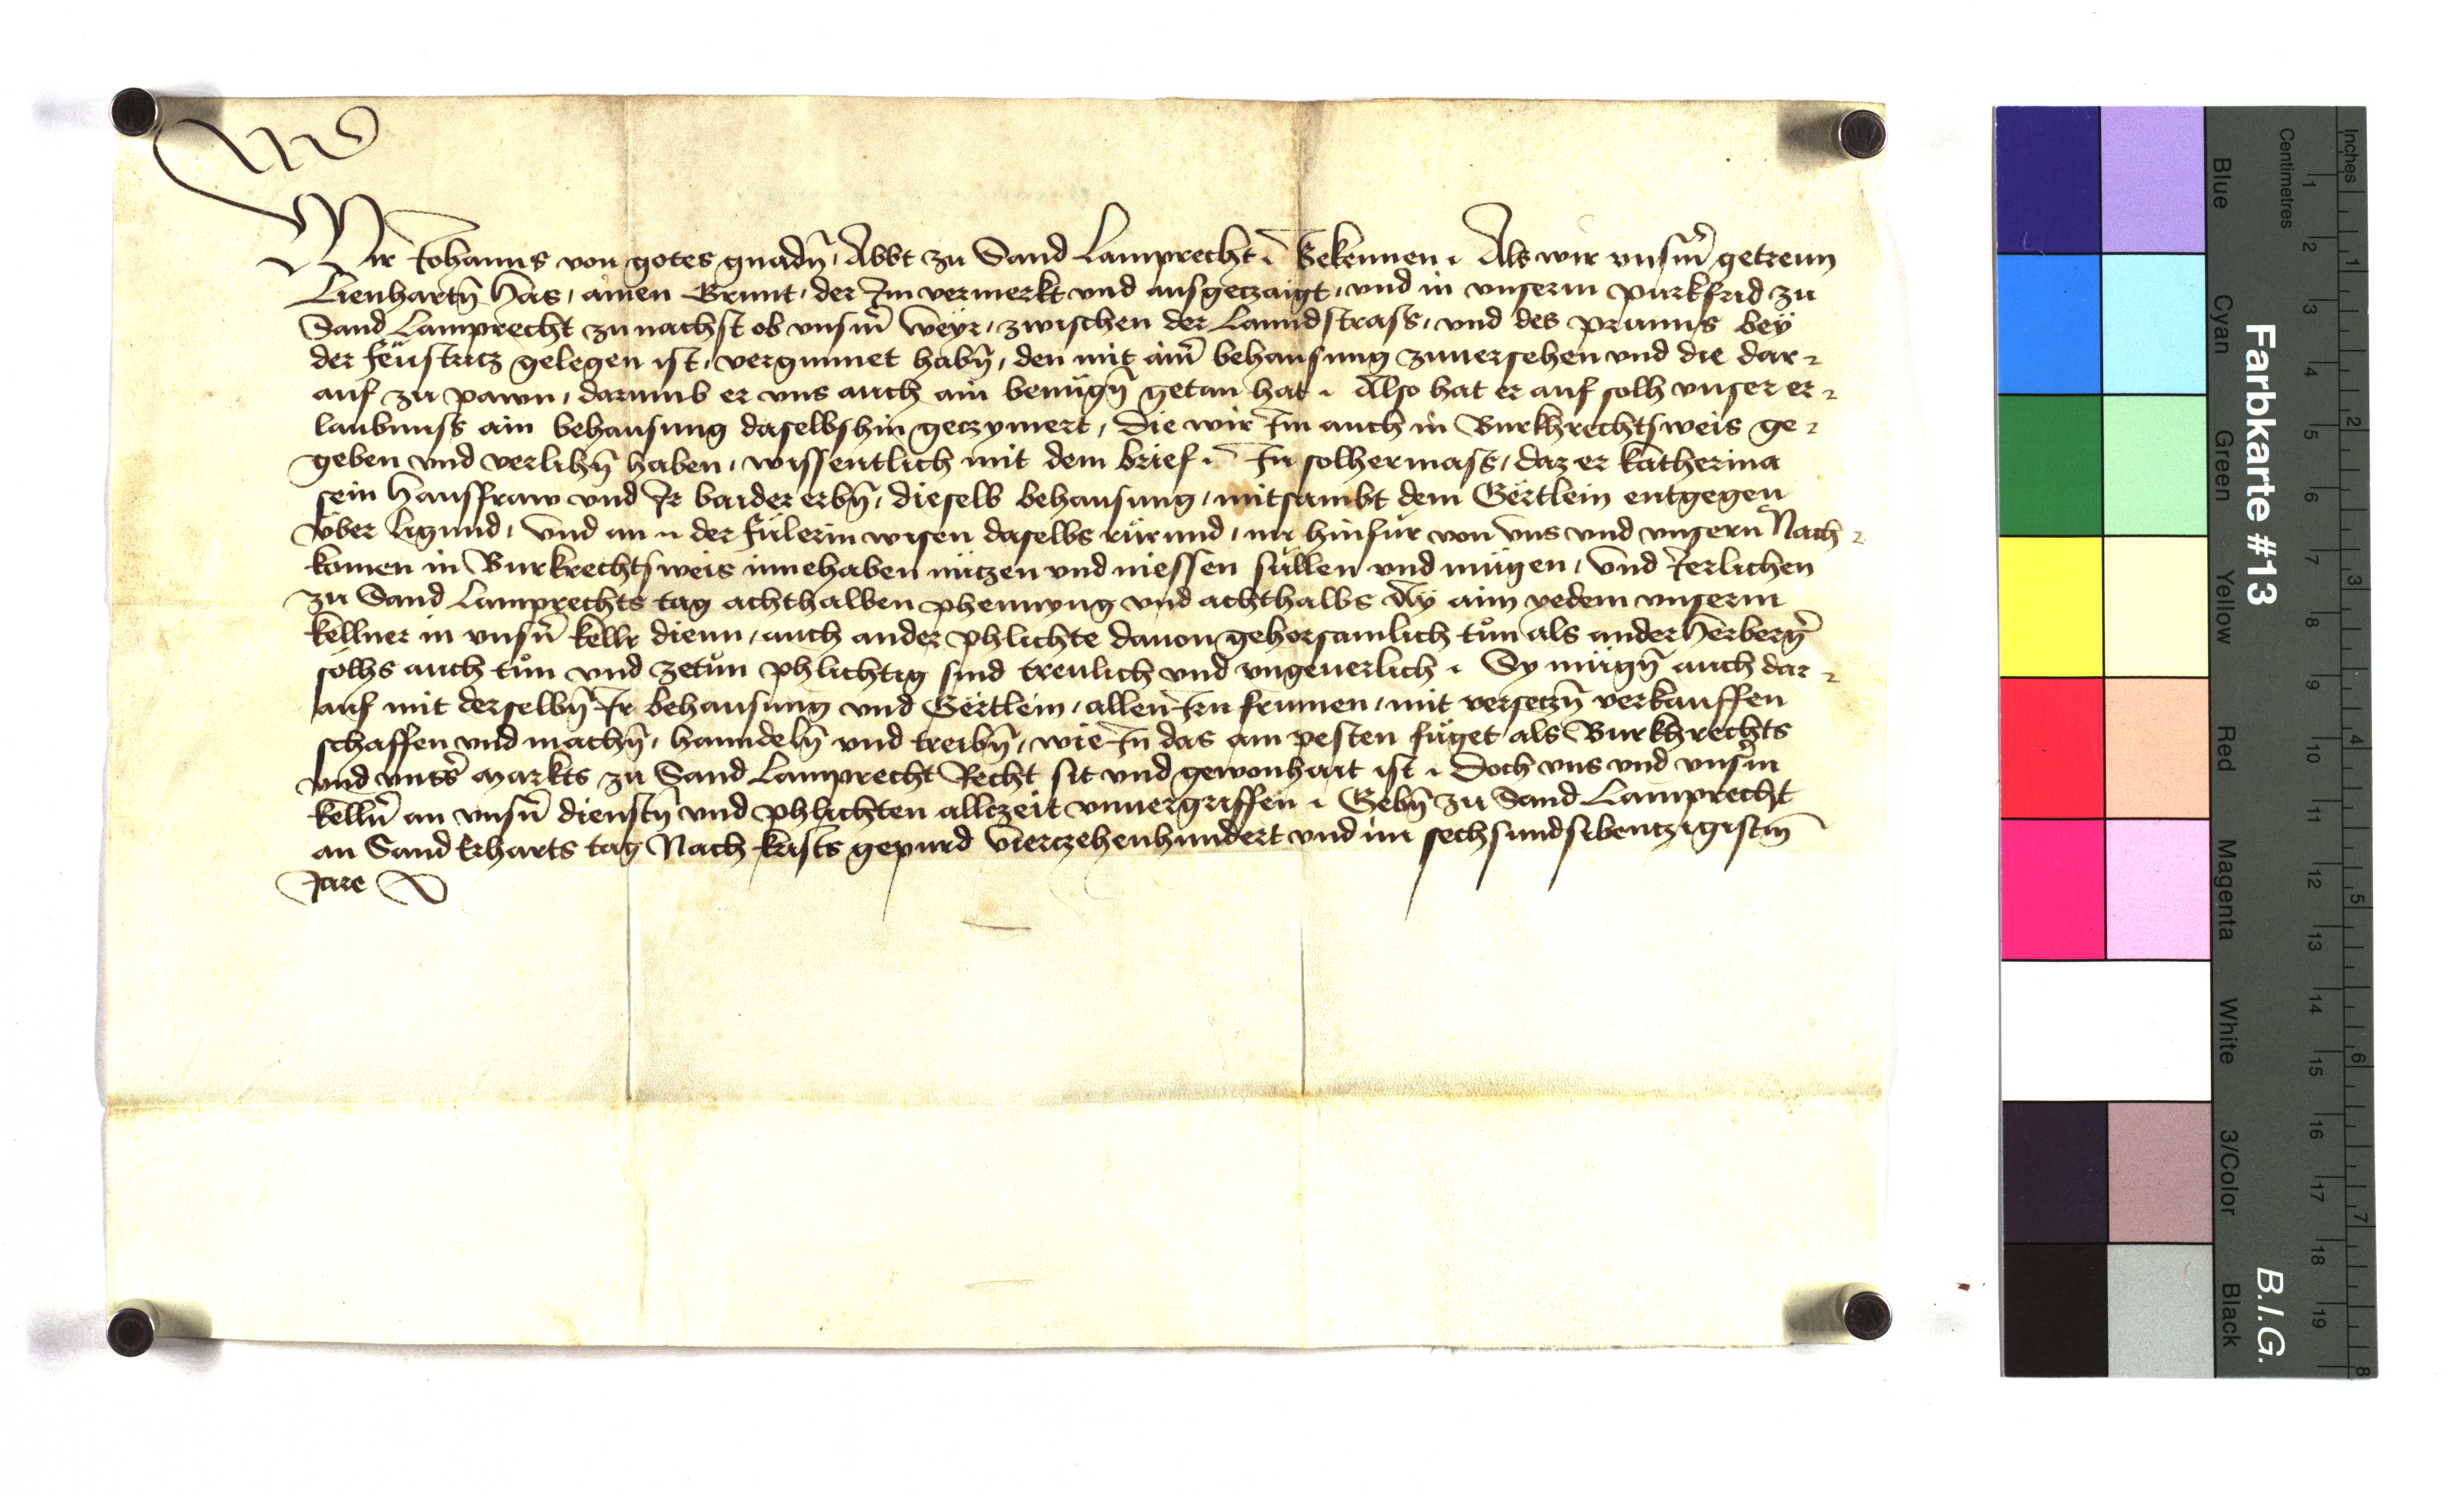 Wir Johanns von gotes gnadn̄, Abbt zu Sand Lamprecht. Bekennen. Als wir vnsm̄ getrewn
Lienhartn̄ Has, ainen Grunt, der Im vermerkt vnd ausgeczaigt, vnd in vnserm purkfrid zu
Sand Lamprecht zunachst ob vnsm̄ Weyr, zwischen der Lanndstrass, vnd des prunns bey
der feustricz gelegen ist, vergunnet habn̄, den mit aim̄ behausung zuuersehen vnd die dar-
auf zu pawn, darumb er vns auch ain benügn̄ getan hat. Also hat er auf solh vnser er-
laubnuss ain behausung daselbshin geczymert, die wir Im auch in Burkhrechtsweis ge-
geben vnd verlihn̄ haben, wissentlich mit dem brief. In solhermass, daz er Katherina
sein Hausfraw vnd Ir baider erbn̄, dieselb behausung, mitsambt dem Gërtlein entgegen
vber ligund, vnd an der fülerin wisen daselbs rürund, nu hinfür von vns vnd vnsern Nach-
komen in Burkrechtsweis innehaben nützen vnd niessen süllen vnd mügen, vnd Jerlichen
zu Sand Lamprechts tag achthalben phennyng vnd achthalbs Ay aim yedem vnserm
kellner in vnsn̄ kellr dienn, auch ander phlichte dauon gehorsamlich tůn als ander Herberg̉
solhs auch tůn vnd zetůn phlichtig sind treulich vnd vngeuerlich. Sy mügn̄ auch dar-
auf mit derselbn̄ Ir behausung vnd Gërtlein, allen Irn frumen, mit verseczn̄ verkauffen
schaffen vnd machn̄, hanndeln̄ vnd treibn̄, wie In das am pesten füget als Burkhrechts
vnd vnss̉ Markts zu Sand Lamprecht Recht sit vnd gewonhait ist. Doch vns vnd vnsm̄
kelln̉ an vnsn̄ dienstn̄ vnd phlichten allczeit vnuergriffen. Gebn̄ zu Sand Lamprecht
an Sand Erharts tag Nach krists gepurd vierczehenhundert vnd im sechsundsibentzigistm̄
Jare
Farbkarte #13
B.I.G.
Inches
Centimetres
1 2 3 4 5 6 7 8 9 10 11 12 13 14 15 16 17 18 19
1 2 3 4 5 6 7 8
Blue
Cyan
Green
Yellow
Red
Magenta
White
3/Color
Black